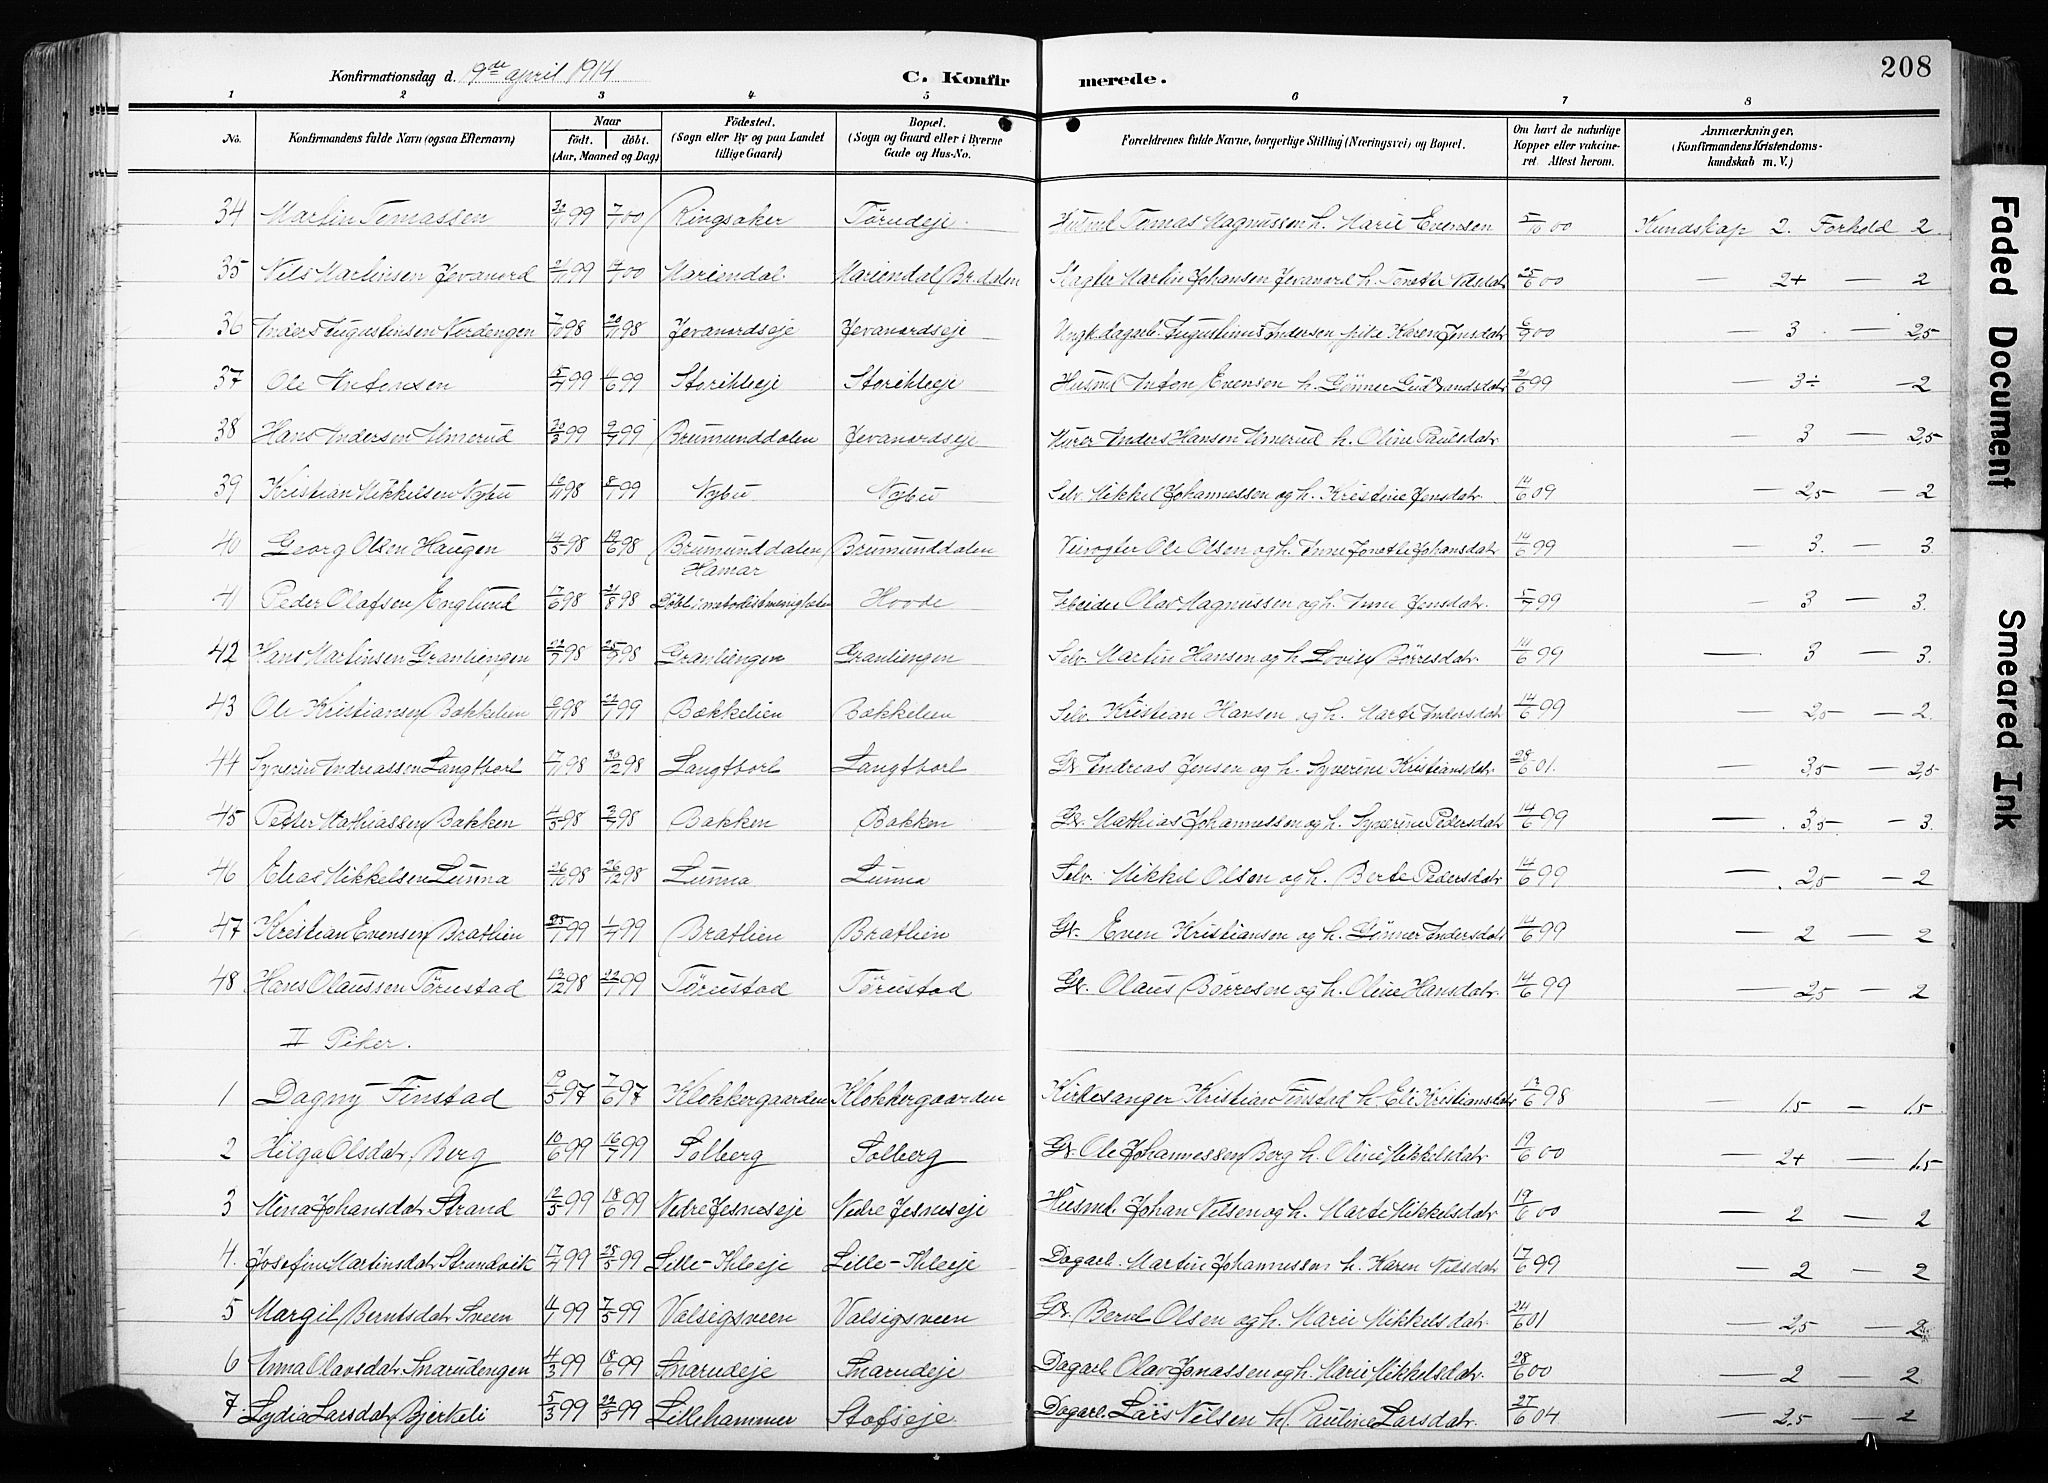 Konfirmationsdag d. 19de april 1914 C. Konfirmerede. 208
1 2 3 4 5 6 7 8
No. Konfirmandens fulde Navn (ogsaa Efternavn) Naar født. døbt. (Aar, Maaned og Dag) Fødested. (Sogn eller By og paa Landet tillige Gaard) Bopæl. (Sogn og Gaard eller i Byerne Gade og Hus-No. Forældrenes fulde Navne, borgerlige Stilling (Næringsvei) og Bopæl. Om havt de naturlige Kopper eller vakcineret. Attest herom. Anmærkninger. (Konfirmandens Kristendomskundskab m. V.)
34 Martin Tomassen 30/11 99 7/1 00 Ringsaker Tørudeje. Husmd Tomas Magnussen h. Marie Evensen 5/10 00 Kundskap 2. Forhold 2.
35 Nils Martinsen Jevanord 99 00 Mariendal. Mariendal Br.dalen Slagter Martin Johansen Jevanord h. Tonette Nilsdatr 25/6 00 — 2+ — 2
36 Anders Augustinsen Nordengen 7/10 98 20/11 98 Jevanordseje Jevanordseje Ungk. dagarb. Augustinus Andersen pike Karen Jensdatr 6/9 00 — 3 — 2,5
37 Ole Antonsen 15/4 99 4/6 99 Storihleeje Storihleeje Husmd Anton Evensen h. Gønner Gudbrandsdatr 21/6 99 — 3÷ — 2
38 Hans Andersen Almerud 30/3 99 9/7 99 Brumunddalen Jevanordseje Murer Anders Hansen Almerud h. Oline Paulsdatr — 3 — 2,5
39 Kristian Mikkelsen Nybu 10/11 98 8/1 99 Nybu Nybu Selv. Mikkel Johannessen og h. Kristine Jensdatr. 14/6 09 — 2,5 — 2
40 Georg Olsen Haugen 14/5 98 19/6 98 Brumunddalen Brumunddalen Veivogter Ole Olsen og h. Anne Jonette Johansdatr 14/6 99 — 3. — 3.
41 Peder Olafsen Englund 17/6 98 21/8 98 Hamar Døbt i metodistmenigheten Hovde Arbeider Olav Magnussen og h. Anne Jensdatr. 5/7 99 — 3 — 3.
42 Hans Martinsen Granliengen 22/7 98 25/9 98 Granliengen Granliengen Selv. Martin Hansen og h. Lovise Børresdatr. 14/6 99 — 3 — 3.
43 Ole Kristiansen Bakkelien 98 99 Bakkelien Bakkelien Selv. Kristian Hansen og h. Marte Andersdatr 14/6 99 — 2,5 — 2.
44 Syverin Andreassen Langtborl 17/11 98 26/12 98 Langtborl Langtborl Gr. Andreas Jensen og h. Syverine Kristiansdatr. 28/6 01. — 3,5 — 2,5
45 Petter Mathiassen Bakken 4/5 98 3/7 98 Bakken Bakken Gr. Mathias Johannessen og h. Syverine Pedersdatr 14/6 99 — 3,5 — 3.
46 Elias Mikkelsen Lunna 26/10 98 26/12 98 Lunna Lunna Selv. Mikkel Olsen og h. Berte Pedersdatr 14/6 99 — 2,5 — 2
47 Kristian Evensen Bratlien 25/1 99 1/4 99 Bratlien Bratlien Gr. Even Kristiansen og h. Gønner Andersdatr 14/6 99 — 2 — 2
48 Hans Olaussen Tørustad 13/12 98 22/1 99 Tørustad Tørustad Gr. Olaus Børresen og h. Oline Hansdatr. 14/6 99 — 2,5 — 2
II Piker.
1 Dagny Finstad 19/5 97 7/6 97 Klokkergaarden Klokkergaarden Kirkesanger Kristian Finstad h. Eli Kristiansdatr 98 — 1.5 — 1.5
2 Helga Olsdatr Berg 10/6 99 16/7 99 Solberg Solberg Gr. Ole Johannessen Berg h. Oline Mikkelsdatr. 19/6 00 — 2+ — 1.5
3 Mina Johansdatr Strand 12/5 99 18/6 99 Nedre Jesneseje Nedre Jesneseje Husmd. Johan Nilsen og h. Marte Mikkelsdatr. 19/6 00 — 2 — 2
4. Josefine Martinsdatr Strandvik 17/4 99 28/5 99 Lille-Ihleeje Lille-Ihleeje Dagarb. Martin Johannessen h. Karen Nilsdatr 17/6 99 — 2 — 2
5 Margit Berntsdatr Sveen 4/4 99 7/5 99 Valsigsveen Valsigsveen Gr. Bernt Olsen og h. Marie Mikkelsdatr. 24/6 01 — 2,5 — 2
6 Anna Olavsdatr Snarudengen 4/3 99 18/6 99 Snarudeje Snarudeje Dagarb Olav Jonassen og h. Marie Mikkelsdatr. 28/6 00 — 2 — 2.
7. Lydia Larsdatr Bjerkeli 5/3 99 22/5 99 Lillehammer Stofseje Dagarb. Lars Nilsen h. Pauline Larsdatr. 27/6 04 — 2.5 — 2
Faded Document
Smeared Ink